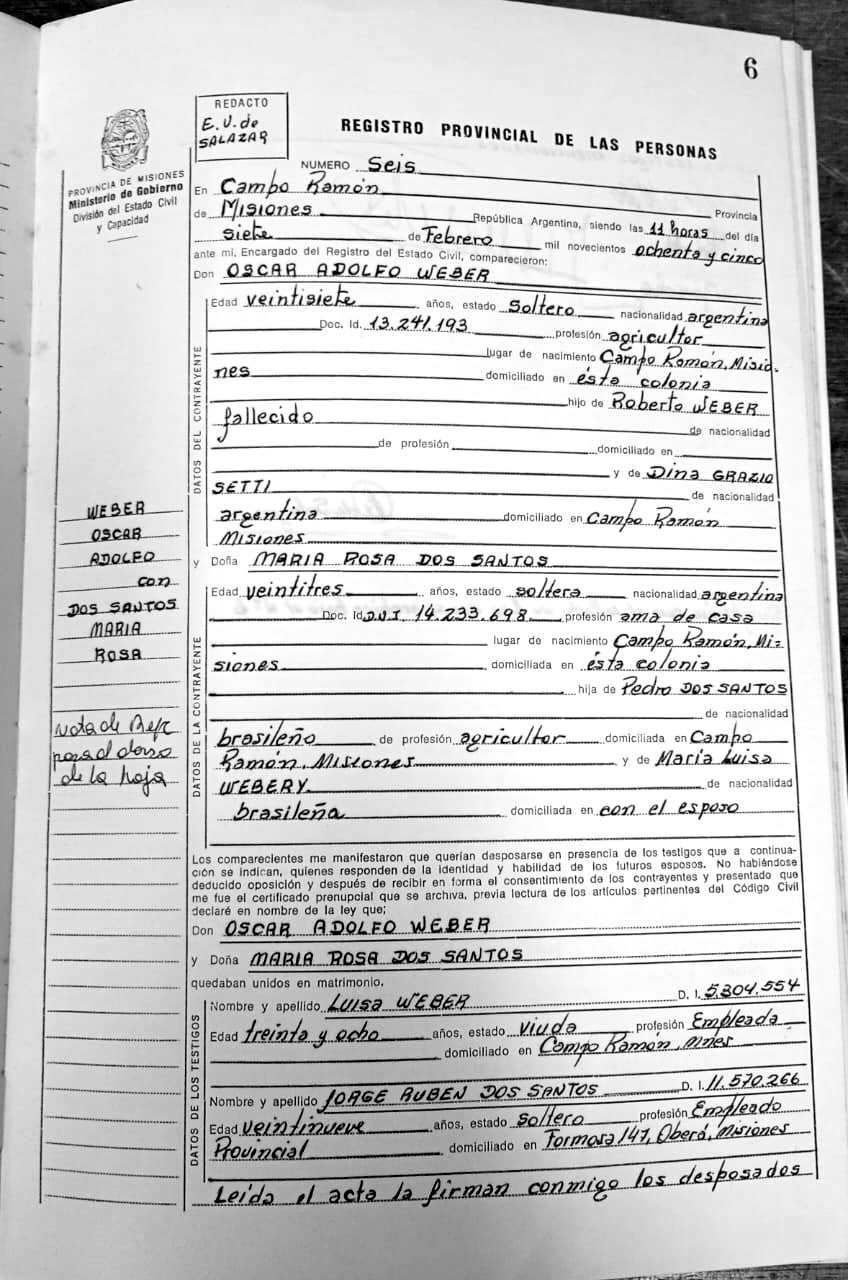 6
REDACTO
E. V. de
SALAZAR
REGISTRO PROVINCIAL DE LAS PERSONAS
PROVINCIA DE MISIONES
Ministerio de Gobierno
División del Estado Civil
y Capacidad
NUMERO Seis
En Campo Ramón Provincia
de Misiones República Argentina, siendo las 11 horas del día
siete de Febrero mil novecientos ochenta y cinco
ante mi, Encargado del Registro del Estado Civil, comparecieron:
Don OSCAR ADOLFO WEBER
DATOS DEL CONTRAYENTE
Edad veintisiete años, estado Soltero nacionalidad argentina
Doc. Id. 13.241.193 profesión agricultor
lugar de nacimiento Campo Ramón, Misio-
nes domiciliado en ésta colonia
hijo de Roberto WEBER
fallecido de nacionalidad
de profesión domiciliado en
y de Dina GRAZIO
SETTI de nacionalidad
argentina domiciliado en Campo Ramón
Misiones
WEBER
OSCAR
ADOLFO
con
DOS SANTOS
MARIA
ROSA
y Doña MARIA ROSA DOS SANTOS
DATOS DE LA CONTRAYENTE
Edad veintitres años, estado soltera nacionalidad argentina
Doc. Id D.N.I 14.233.698 profesión ama de casa
lugar de nacimiento Campo Ramón, Mi-
siones domiciliada en ésta colonia
hija de Pedro DOS SANTOS
de nacionalidad
brasileño de profesión agricultor domiciliada en Campo
Ramón, Misiones y de María Luisa
WEBERY de nacionalidad
brasileña domiciliada en con el esposo
nota de
para el dorso
de la hoja
Los comparecientes me manifestaron que querían desposarse en presencia de los testigos que a continua-
ción se indican, quienes responden de la identidad y habilidad de los futuros esposos. No habiéndose
deducido oposición y después de recibir en forma el consentimiento de los contrayentes y presentado que
me fue el certificado prenupcial que se archiva, previa lectura de los artículos pertinentes del Código Civil
declaré en nombre de la ley que;
Don OSCAR ADOLFO WEBER
y Doña MARIA ROSA DOS SANTOS
quedaban unidos en matrimonio.
DATOS DE LOS TESTIGOS
Nombre y apellido LUISA WEBER D. I. 5.804.554
Edad treinta y ocho años, estado Viuda profesión Empleada
domiciliado en Campo Ramón, Mnes
Nombre y apellido JORGE RUBEN DOS SANTOS D. I. 11.570.266
Edad veintinueve años, estado soltero profesión Empleado
Provincial domiciliado en Formosa 147, Oberá, Misiones
Leída el acta la firman conmigo los desposados